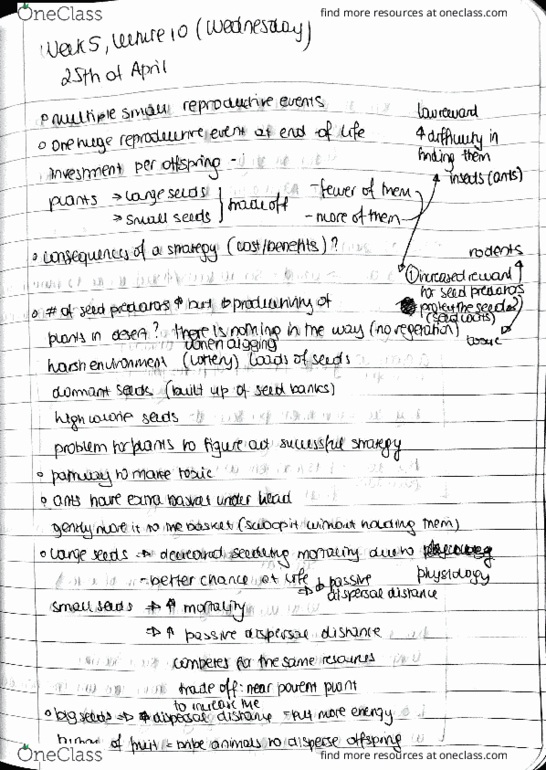 OneClass
find more resources at oneclass.com
Week 5, lecture 10 (Wednesday)
25th of April
multiple small reproductive events
one huge reproductive event at end of life
investment per offspring -
plants → large seeds
→ small seeds
trade off
- fewer of them
- more of them
low reward
↑ difficulty in
finding them
insects (ants)
rodents
① increased reward ↑
for seed predators
protect the seeds?
(seed coats)
toxic
consequences of a strategy (cost/benefits)?
# of seed predators ↑ but ↓ productivity of
plants in desert? there is nothing in the way (no vegetation)
when digging
harsh environment (lottery) loads of seeds
dormant seeds (built up of seed banks)
high calorie seeds
problem for plants to figure out successful strategy
pathway to make toxic
ants have extra basket under head
gently move it to the basket (scoop it without holding them)
large seeds → decreased seedling mortality due to
physiology
- better chance at life
⇒ ↓ passive
dispersal distance
small seeds ⇒ ↑ mortality
⇒ ↑ passive dispersal distance
competes for the same resources
trade off: near parent plant
to increase the
big seeds ⇒ dispersal distance - put more energy
of fruit = bribe animals to disperse offspring
OneClass
find more resources at oneclass.com